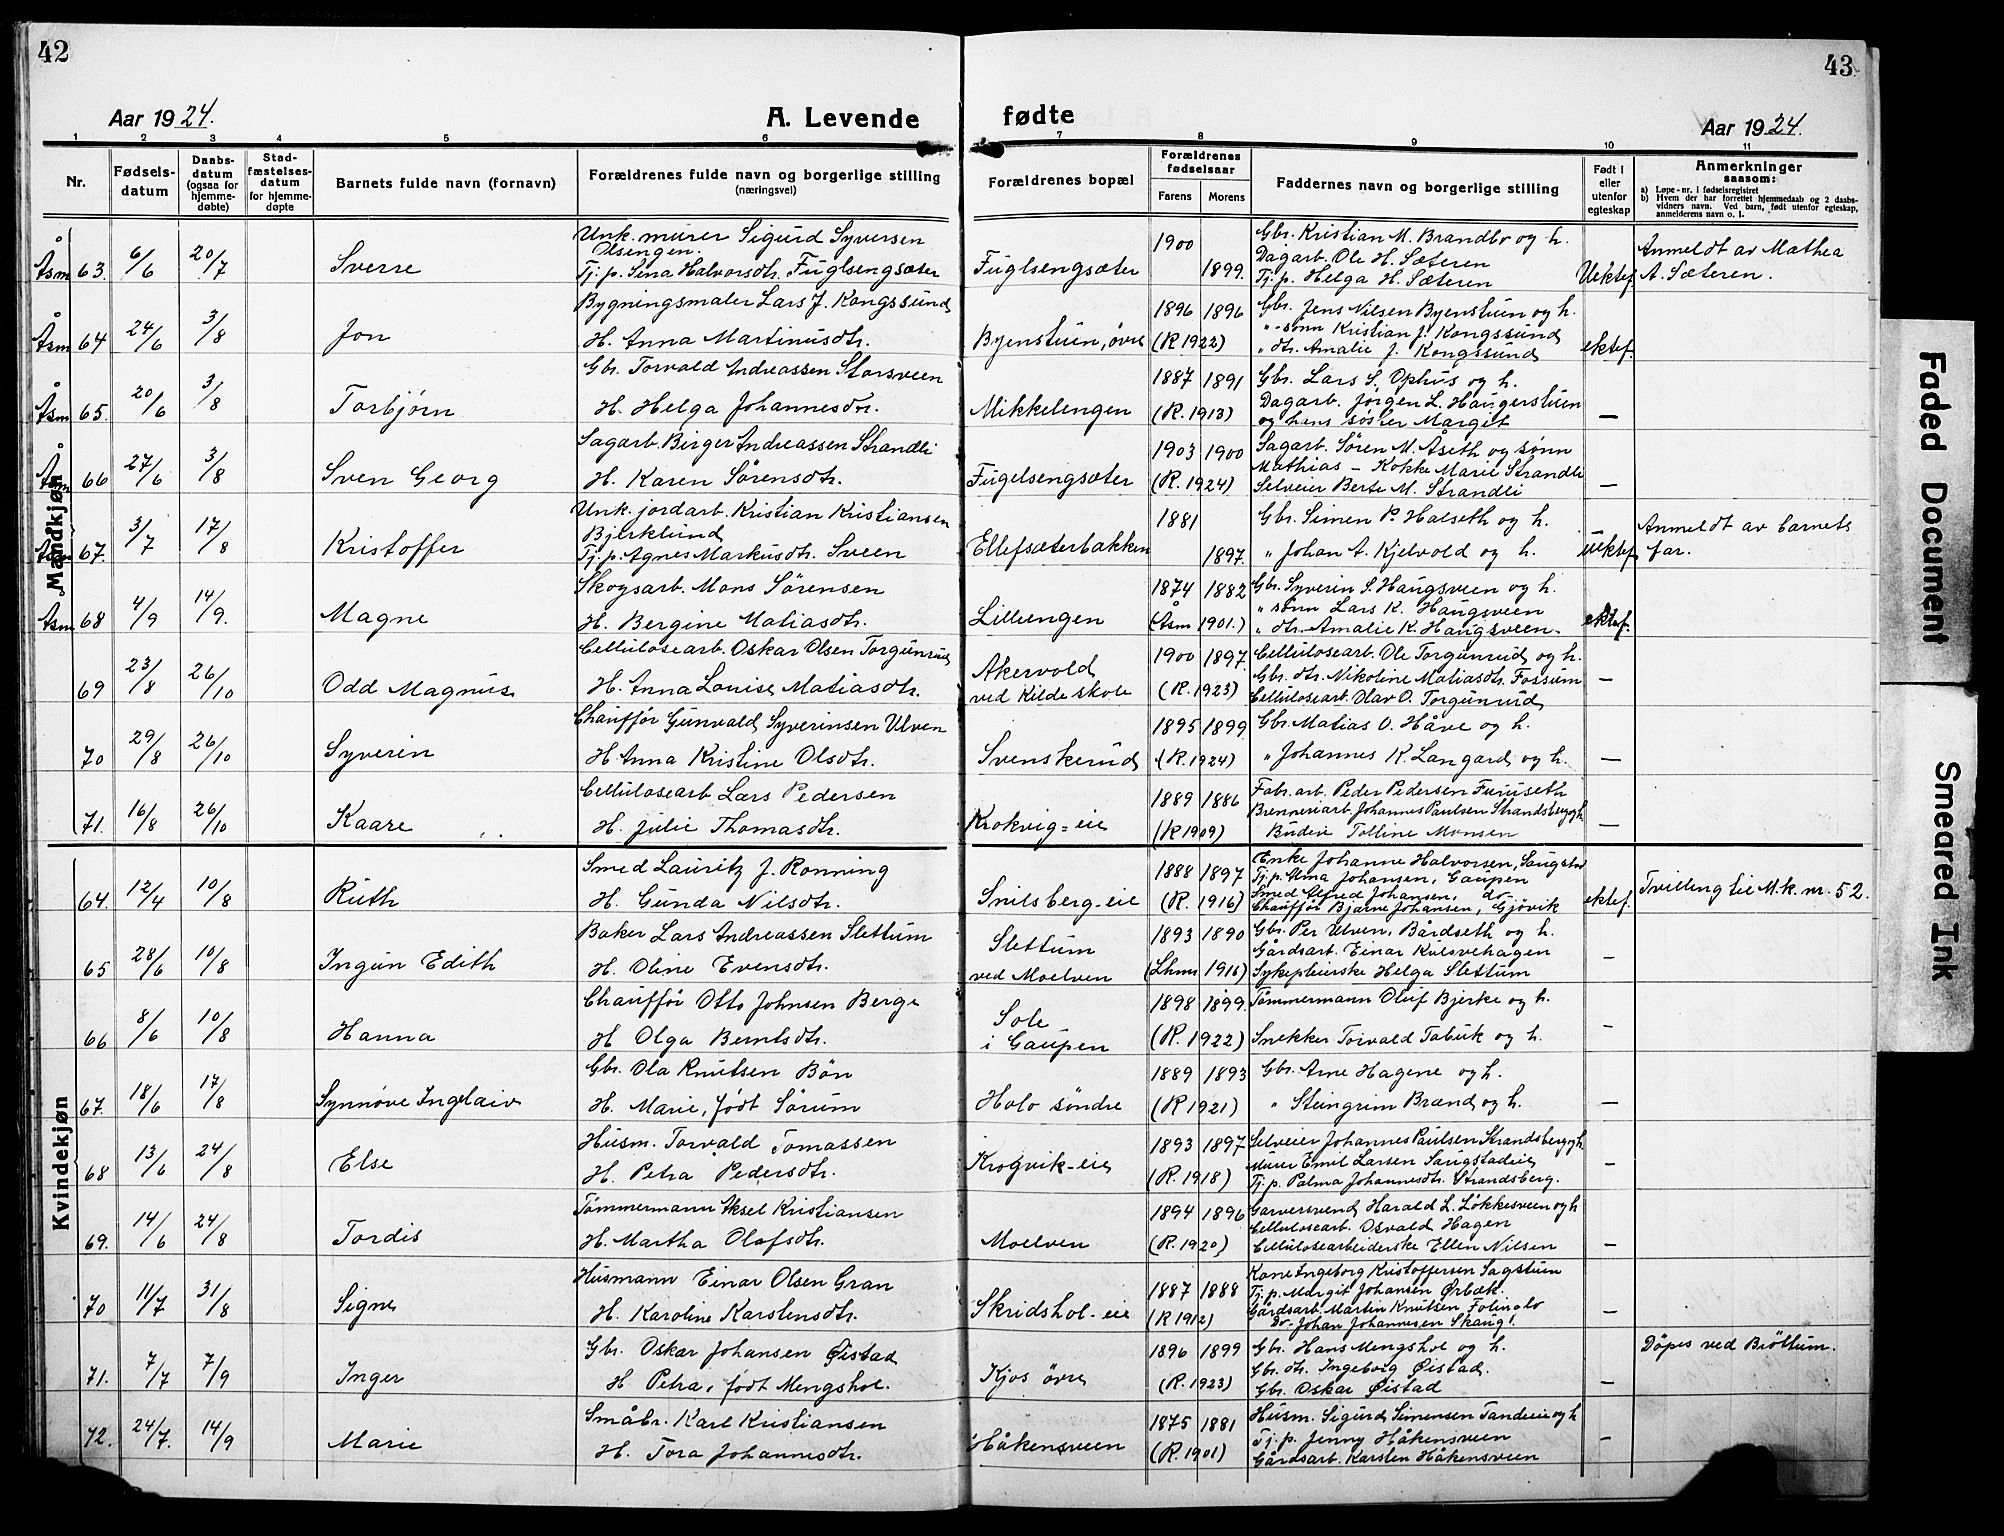 42
43
Aar 1924.
A. Levende fødte
Aar 1924.
1 2 3 4 5 6 7 8 9 10 11
Nr.
Fødsels-
datum
Daabs-
datum
(ogsaa for
hjemme-
døbte)
Stad-
fæstelses-
datum
for hjemme-
døpte
Barnets fulde navn (fornavn)
Forældrenes fulde navn og borgerlige stilling
(næringsvei)
Forældrenes bopæl
Forældrenes
fødselsaar
Farens Morens
Faddernes navn og borgerlige stilling
Født i
eller
utenfor
egteskap
Anmerkninger
saasom:
a) Løpe-nr. i fødselsregistret
b) Hvem der har forrettet hjemmedaab og 2 daabs-
vidners navn. Ved barn, født utenfor egteskap,
anmelderens navn o. l.
Mandkjøn
Åsm 63. 6/6 20/7 Sverre
Unk. murer Sigurd Syversen
Olsengen.
Tj. p. Lina Halvorsdtr. Fuglsengsæter
Fuglsengsæter
1900 1899.
Gbr. Kristian M. Brandbo og h.
Dagarb. Ole H. Sæteren
Tj. p. Helga H. Sæteren
Uektef.
Anmeldt av Mathea
A. Sæteren.
Åsm 64 24/6 3/8 Jon
Bygningsmaler Lars J. Kongssund
H. Anna Martinusdtr.
Byenstuen, øvre
1896 1896
(R. 1922)
Gbr. Jens Nilsen Byenstuen og h.
" sønn Kristian J. Kongssund
" dtr. Amalie J. Kongssund
ektef.
Åsm 65. 20/6 3/8 Torbjørn
Gbr. Torvald Andreassen Storsveen
H. Helga Johannesdtr.
Mikkelengen
1887 1891
(R. 1913)
Gbr. Lars S. Ophus og h.
Dagarb. Jørgen L. Haugerstuen
og hans søster Marget
—
Åsm 66 27/6 3/8 Sven Georg
Sagarb. Birger Andreassen Strandli
H. Karen Sørensdtr.
Fugelsengsæter
1903 1900
(R. 1924)
Sagarb. Søren M. Åseth og sønn
Mathias - Kokke Marie Strandli
Selveier Berte M. Strandli
—
Åsm 67. 3/7 17/8 Kristoffer
Unk. jordarb. Kristian Kristiansen
Bjerklund
Tj. p. Agnes Markusdtr. Sveen
Ellefsæterbakken
1881 1897.
Gbr. Simen P. Halseth og h.
" Johan A. Kjelvold og h.
uektef.
Anmeldt av barnets
far.
Åsm 68 4/9 14/9. Magne
Skogsarb. Mons Sørensen
H. Bergine Matiasdtr.
Lilleengen
1874 1882
(Åsm 1901.)
Gbr. Syverin S. Haugsveen og h.
" sønn Lars K. Haugsveen
" dtr. Amalie K. Haugsveen.
ektef.
69 23/8 26/10 Odd Magnus
Cellulosearb. Oskar Olsen Torgunrud
H. Anna Louise Matiasdtr.
Akervold
ved Kilde skole
1900 1897.
(R. 1923)
Cellulosearb. Ole Torgunrud og h.
Gbr. dtr. Nikoline Matiasdtr. Fossum
Cellulosearb. Olav O. Torgunrud
—
70 29/8 26/10 Syverin
Chauffør Gunvald Syverinsen Ulven
H. Anna Kristine Olsdtr.
Svenskerud
1895 1899.
(R. 1924)
Gbr. Matias O. Håve og h.
" Johannes K. Langard og h.
—
71. 16/8 26/10 Kaare
Cellulosearb Lars Pedersen
H. Julie Thomasdtr.
Krokvig=eie
1889 1886
(R 1909)
Fabr. arb. Peder Pedersen Furuseth
Brenneriarb. Johannes Paulsen Strandsberg og h.
Budeie Tolline Monsen
—
Kvindekjøn
64. 12/4 10/8 Ruth
Smed Lauritz J. Ronning
H. Gunda Nilsdtr.
Snilsberg-eie
1888 1897
(R. 1916)
Enke Johanne Halvorsen, Saugstad
Tj. p. Alma Johansen, Gaupen
Smed Alfred Johansen, do
Chauffør Bjarne Johansen, Gjøvik
ektef.
Tvilling til M.k. nr. 52.
65 28/6 10/8 Ingun Edith
Baker Lars Andreassen Slettum
H. Oline Evensdtr.
Slettum
ved Moelven
1893 1890
(Lhmr 1916)
Gbr. Per Ulven, Bardseth og h.
Gårdsarb. Einar Kulsvehagen
Sykepleierske Helga Slettum
—
66 8/6 10/8 Hanna
Chauffør Otto Johnsen Berge
H Olga Berntsdtr.
Sole
i Gaupen
1898 1899.
(R. 1922)
Tømmermann Oluf Bjerke og h.
Snekker Torvald Tabuk og h.
—
67. 18/6 17/8 Synnøve Ingelaiv
Gbr. Ola Knutsen Bön
H. Marie, født Sørum
Holo søndre
1889 1893
(R. 1921)
Gbr. Arne Hagene og h.
" Steingrim Brænd og h.
—
68 13/6 24/8 Else
Husm. Torvald Tomassen
H. Petra Pedersdtr.
Krogvik-eie
1893 1897
(R. 1918)
Selveier Johannes Paulsen Strandsberg og h.
Murer Emil Larsen Saugstadeie
Tj. p. Palma Johannesdtr. Strandsberg.
—
69. 14/6 24/8 Tordis
Tømmermann Aksel Kristiansen
H. Martha Olafsdtr.
Moelven
1894 1896
(R. 1920)
Garversvend Harald L. Løkkesveen og h
Cellulosearb. Osvald Hagen
Cellulosearbeiderske Ellen Nilsen
—
70 11/7 31/8 Signe
Husmann Einar Olsen Gran
H. Karoline Karstensdtr.
Skridshol-eie
1887 1888
(R 1912)
Kone Ingeborg Kristoffersen Sagstuen
Tj. p. Margit Johansen Ørbæk.
Gårdsarb. Martin Knutsen Folinslo
Do- Johan Johannesen Skaug!.
—
71. 7/7 7/9 Inger
Gbr. Oskar Johansen Øistad
H Petra, født Mengshol.
Kjos øvre
1896 1899
(R. 1923)
Gbr. Hans Mengshol og h.
Gbr. dtr. Ingeborg Øistad.
Gbr. Oskar Øistad
—
Døpes ved Brøttum.
72. 24/7. 14/9 Marie
Småbr. Karl Kristiansen
H. Tora Johannesdtr.
Håkensveen
1875 1881
(R. 1901)
Husm. Sigurd Simensen Tandeie og h
Tj. p. Jenny Håkensveen
Gårdsarb. Karsten Håkensveen
—
Faded Document
Smeared Ink